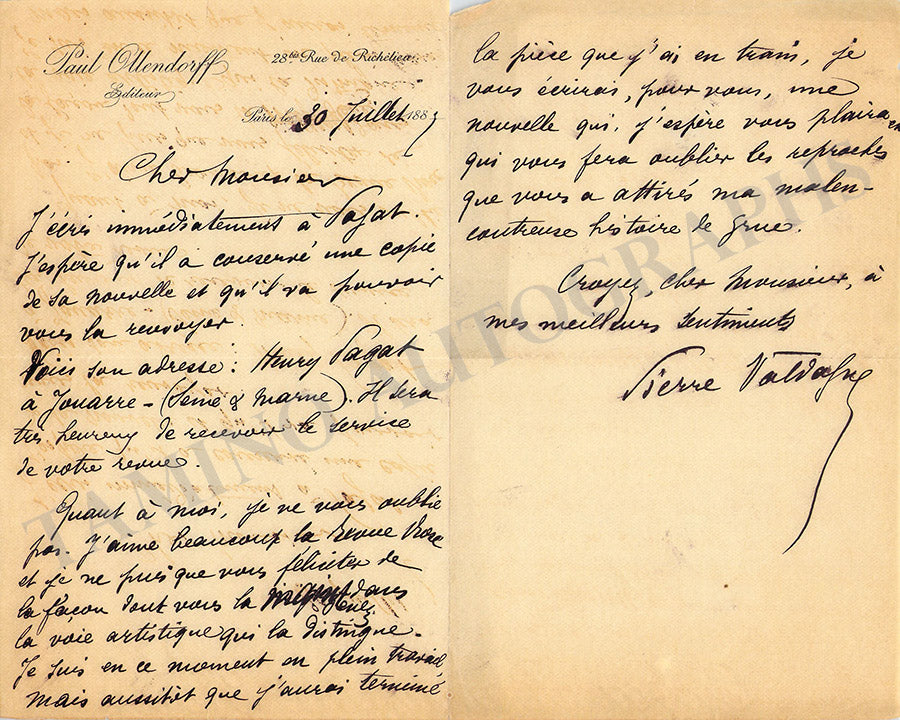 Paul Ollendorff
Editeur
28 bis Rue de Richelieu
Paris le 30 Juillet 1887
Cher Monsieur
J'écris immédiatement à Pagat.
J'espère qu'il a conservé une copie
de sa nouvelle et qu'il va pouvoir
vous la renvoyer.
Voici son adresse : Henry Pagat
à Jouarre - (Seine & Marne). Il sera
très heureux de recevoir le service
de votre revue.
Quant à moi, je ne vous oublie
pas. J'aime beaucoup la Revue Rose
et je ne puis que vous féliciter de
la façon dont vous la dans
la voie artistique qui la distingue.
Je suis en ce moment en plein travail
mais aussitôt que j'aurai terminé
la pièce que j'ai en train, je
vous écrirai, pour vous, une
nouvelle qui, j'espère vous plaira et
qui vous fera oublier les reproches
que vous a attirés ma malen-
contreuse histoire de grue.
Croyez, cher Monsieur, à
mes meilleurs sentiments
Pierre Valdagne
TAMINO AUTOGRAPHS